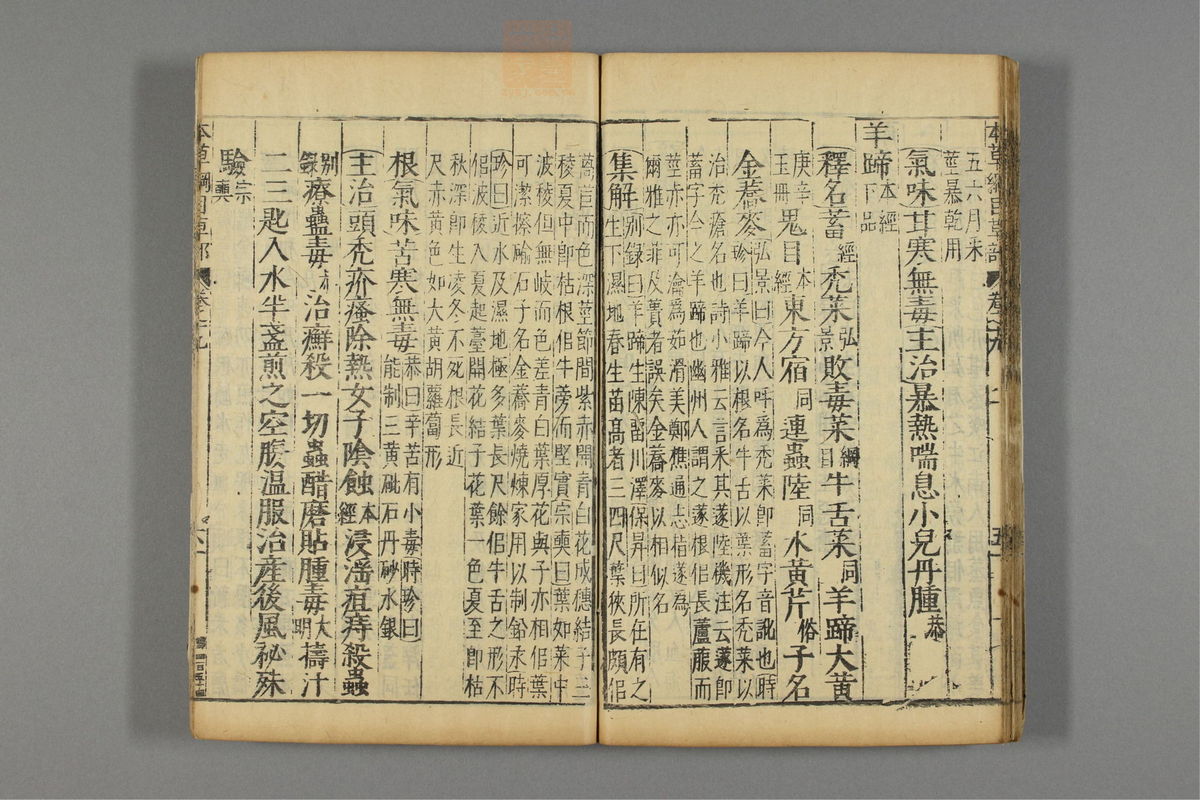 五六月采
莖暴乾用
氣味甘寒無毒主治暴熱喘息小兒丹腫恭
羊蹄本經下品
釋名蓄經禿菜弘景敗毒菜綱目牛舌菜同羊蹄大黃
庚辛玉冊鬼目本經東方宿同連蟲陸同水黃芹俗子名
金蕎麥弘景曰今人呼爲禿菜卽蓄字音訛也時
珍曰羊蹄以根名牛舌以葉形名禿菜以
治禿瘡名也詩小雅云言采其蓫陸機注云蓫卽
蓄字今之羊蹄也幽州人謂之蓫根佀長蘆菔而
莖赤亦可瀹爲茹滑美鄭樵通志指蓫爲
爾雅之菲及蕢者誤矣金蕎麥以相似名
集解别錄曰羊蹄生陳留川澤保昇曰所在有之
生下濕地春生苗高者三四尺葉狹長頗佀
萵苣而色深莖節間紫赤開青白花成穗結子三
稜夏中卽枯根佀牛蒡而堅實宗奭曰葉如菜中
波稜但無岐而色差青白葉厚花與子亦相佀葉
可潔擦硊石子名金蕎麥燒煉家用以制鉛汞時
珍曰近水及濕地極多葉長尺餘佀牛舌之形不
佀波稜入夏起薹開花結子花葉一色夏至卽枯
秋深卽生凌冬不死根長近
尺赤黃色如大黃胡蘿蔔形
根氣味苦寒無毒恭曰辛苦有小毒時珍曰
能制三黃砒石丹砂水銀
主治頭禿疥瘙除熱女子陰蝕本經浸淫疽痔殺蟲
别錄療蠱毒恭治癬殺一切蟲醋磨貼腫毒大明擣汁
二三匙入水半盞煎之空腹温服治産後風祕殊
驗宗奭